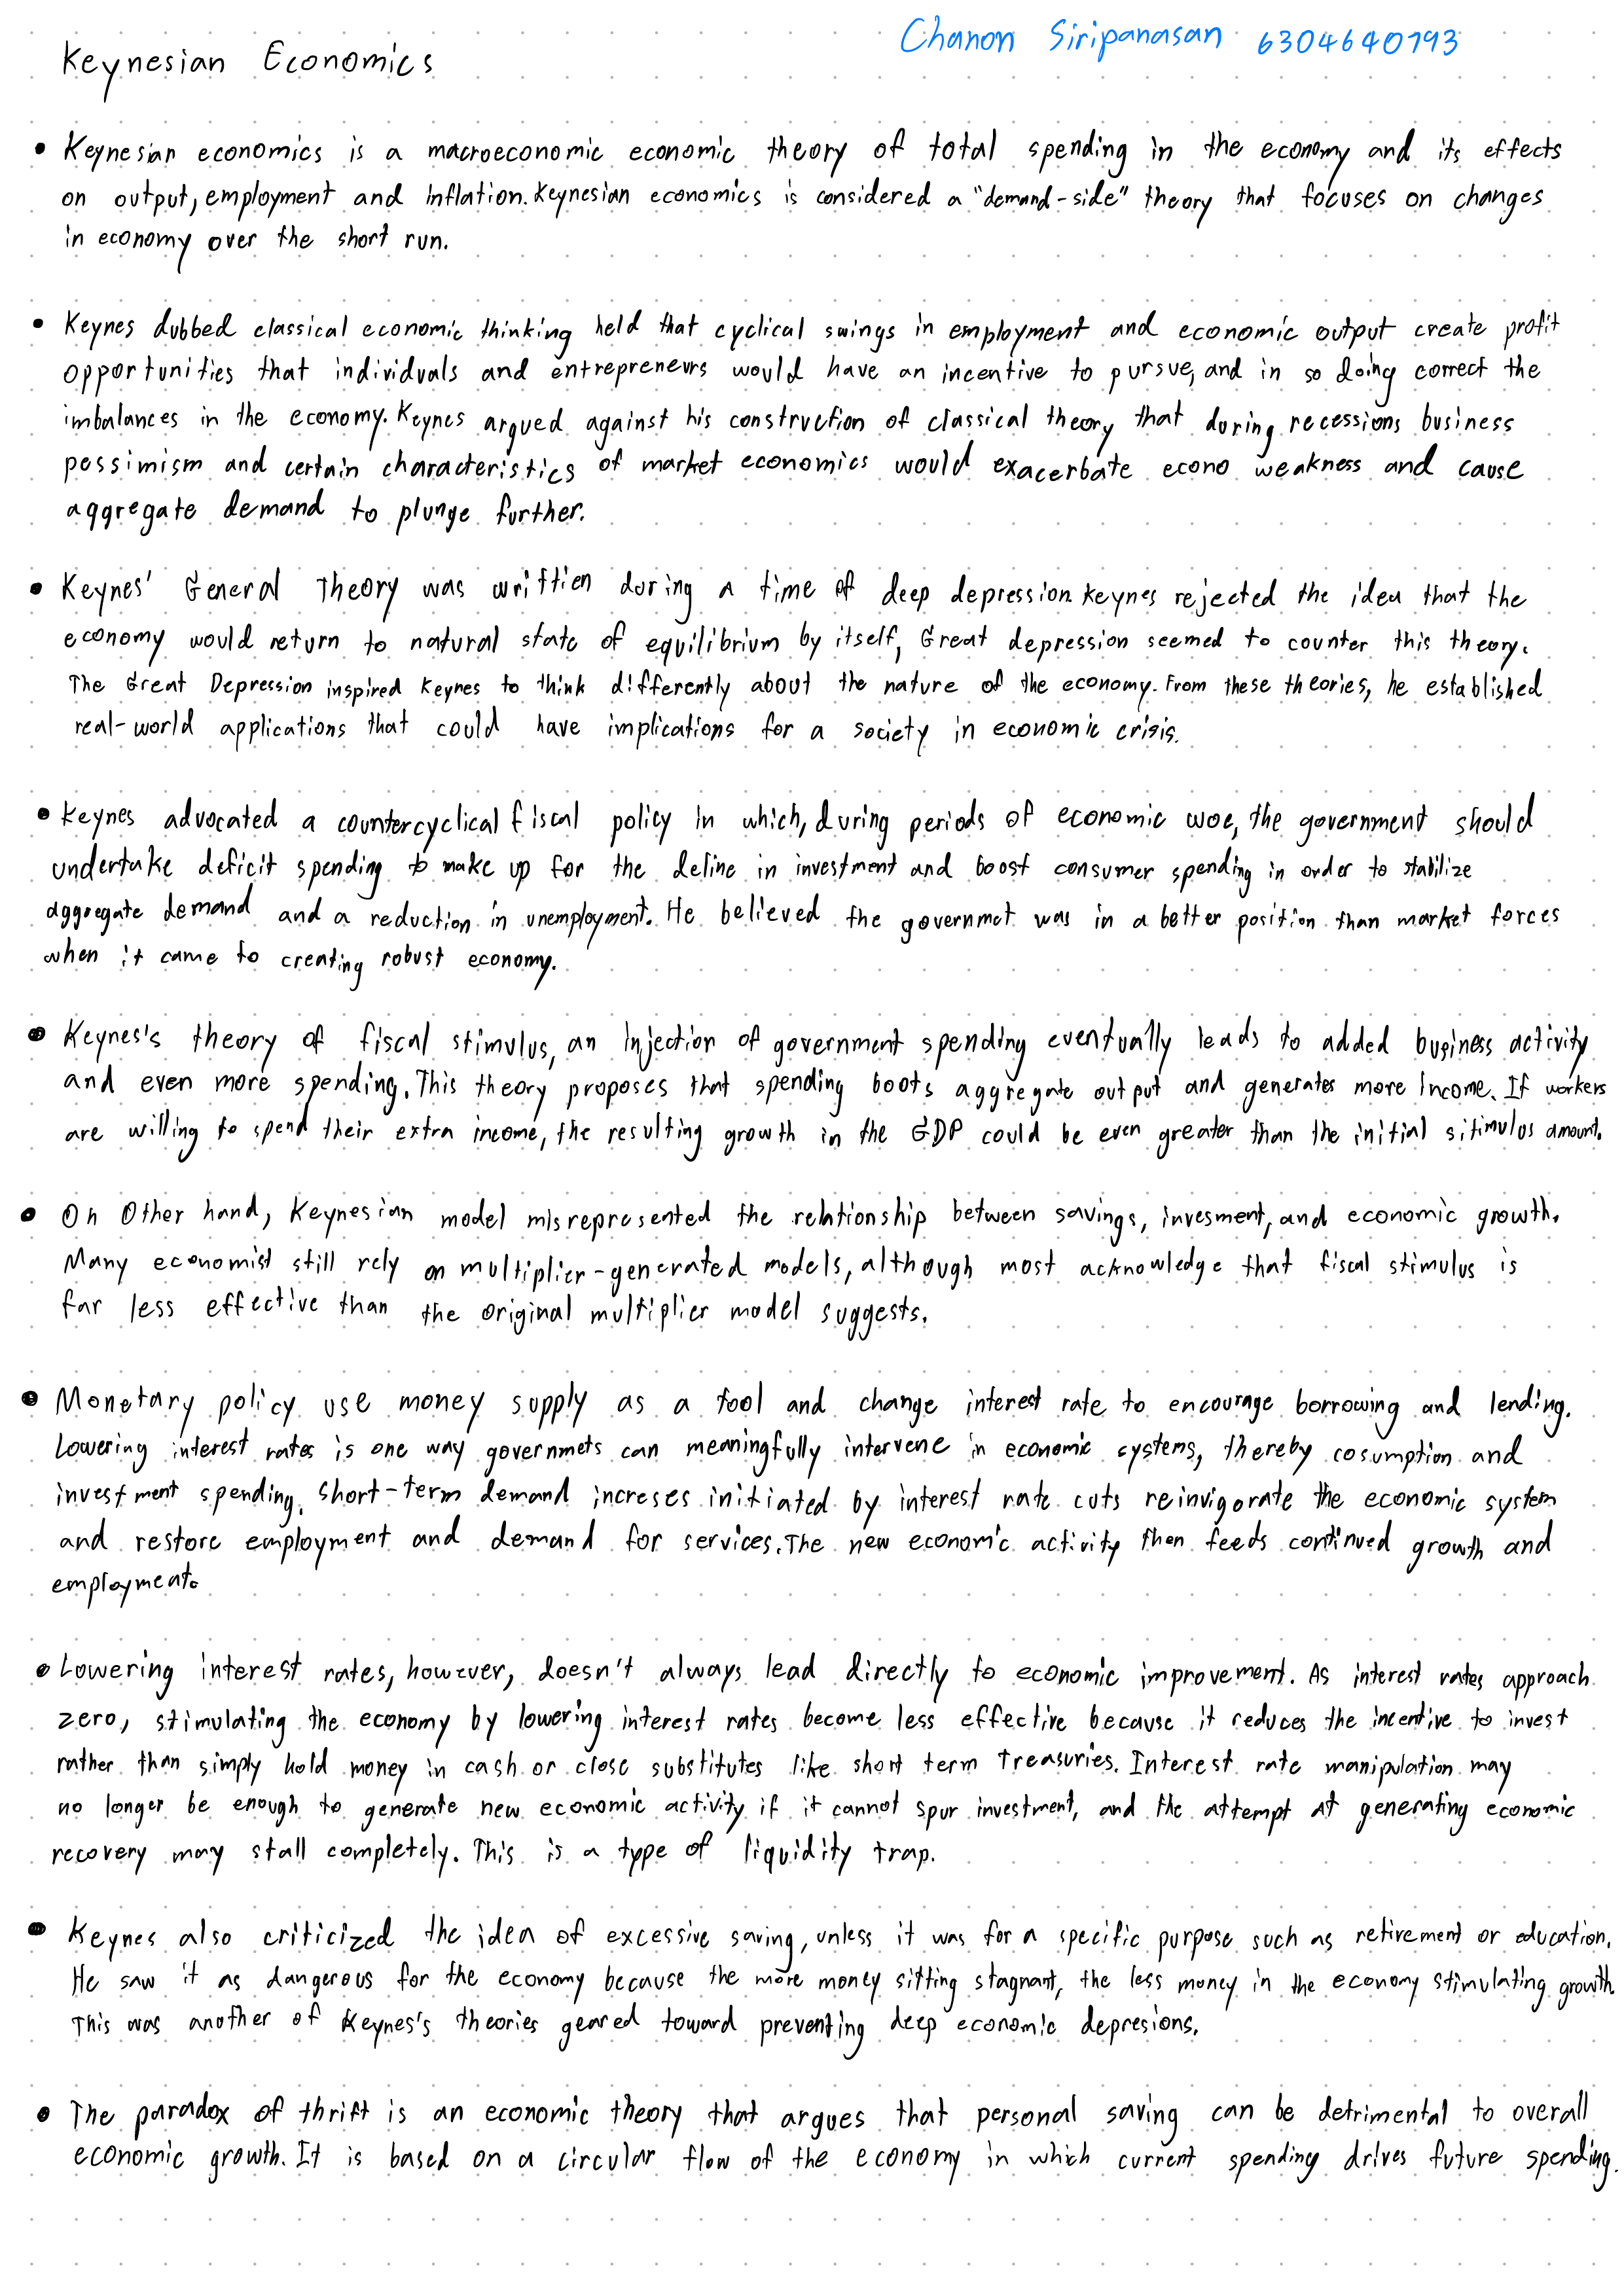 Chanon Siripanasan 6304640793
Keynesian Economics
• Keynesian economics is a macroeconomic economic theory of total spending in the economy and its effects
on output, employment and inflation. Keynesian economics is considered a "demand-side" theory that focuses on changes
in economy over the short run.
• Keynes dubbed classical economic thinking held that cyclical swings in employment and economic output create profit
opportunities that individuals and entrepreneurs would have an incentive to pursue, and in so doing correct the
imbalances in the economy. Keynes argued against his construction of classical theory that during recessions business
pessimism and certain characteristics of market economics would exacerbate econo weakness and cause
aggregate demand to plunge further.
• Keynes' General Theory was writtien during a time of deep depression. Keynes rejected the idea that the
economy would return to natural state of equilibrium by itself, Great depression seemed to counter this theory.
The Great Depression inspired Keynes to think differently about the nature of the economy. From these theories, he established
real-world applications that could have implications for a society in economic crisis.
• Keynes advocated a countercyclical fiscal policy in which, during periods of economic woe, the government should
undertake deficit spending to make up for the define in investment and boost consumer spending in order to stabilize
aggregate demand and a reduction in unemployment. He believed the governmet was in a better position than market forces
when it came to creating robust economy.
• Keynes's theory of fiscal stimulus, an injection of government spending eventually leads to added business activity
and even more spending. This theory proposes that spending boots aggregate output and generates more income. If workers
are willing to spend their extra income, the resulting growth in the GDP could be even greater than the initial sitimulus amount.
• On Other hand, Keynesian model misrepresented the relationship between savings, invesment, and economic growth.
Many economist still rely on multiplier-generated models, although most acknowledge that fiscal stimulus is
far less effective than the original multiplier model suggests.
• Monetary policy use money supply as a tool and change interest rate to encourage borrowing and lending.
Lowering interest rates is one way governmets can meaningfully intervene in economic systems, thereby cosumption and
investment spending. Short-term demand increses initiated by interest rate cuts reinvigorate the economic system
and restore employment and demand for services. The new economic activity then feeds continued growth and
employment.
• Lowering interest rates, however, doesn't always lead directly to economic improvement. As interest rates approach
zero, stimulating the economy by lowering interest rates become less effective because it reduces the incentive to invest
rather than simply hold money in cash or close substitutes like short term Treasuries. Interest rate manipulation may
no longer be enough to generate new economic activity if it cannot spur investment, and the attempt at generating economic
recovery may stall completely. This is a type of liquidity trap.
• Keynes also criticized the idea of excessive saving, unless it was for a specific purpose such as retirement or education.
He saw it as dangerous for the economy because the more money sitting stagnant, the less money in the economy stimulating growth.
This was another of Keynes's theories geared toward preventing deep economic depresions.
• The paradox of thrift is an economic theory that argues that personal saving can be detrimental to overall
economic growth. It is based on a circular flow of the economy in which current spending drives future spending.